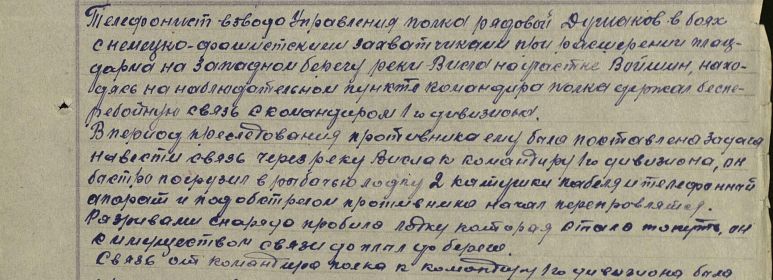 Телефонист взвода Управления полка рядовой Душаков в боях
с немецко-фашистскими захватчиками при расшерении плац-
дарма на западном берегу реки Висла на участке Войшин, нахо-
дясь на наблюдательном пункте командира полка держал беспе-
ребойную связь с командиром 1го дивизиона.
В период преследования противника ему была поставлена задача
навести связь через реку Висла к командиру 1го дивизиона, он
быстро погрузил в рыбачью лодку 2 катушки кабеля и телефонный
апорат и под обстрелом противника начал перепровлятся.
Разрывами снаряда пробило лодку которая стала тонуть, он
с имуществом связи до берега.
Связь от командира полка к командиру 1го дивизиона была